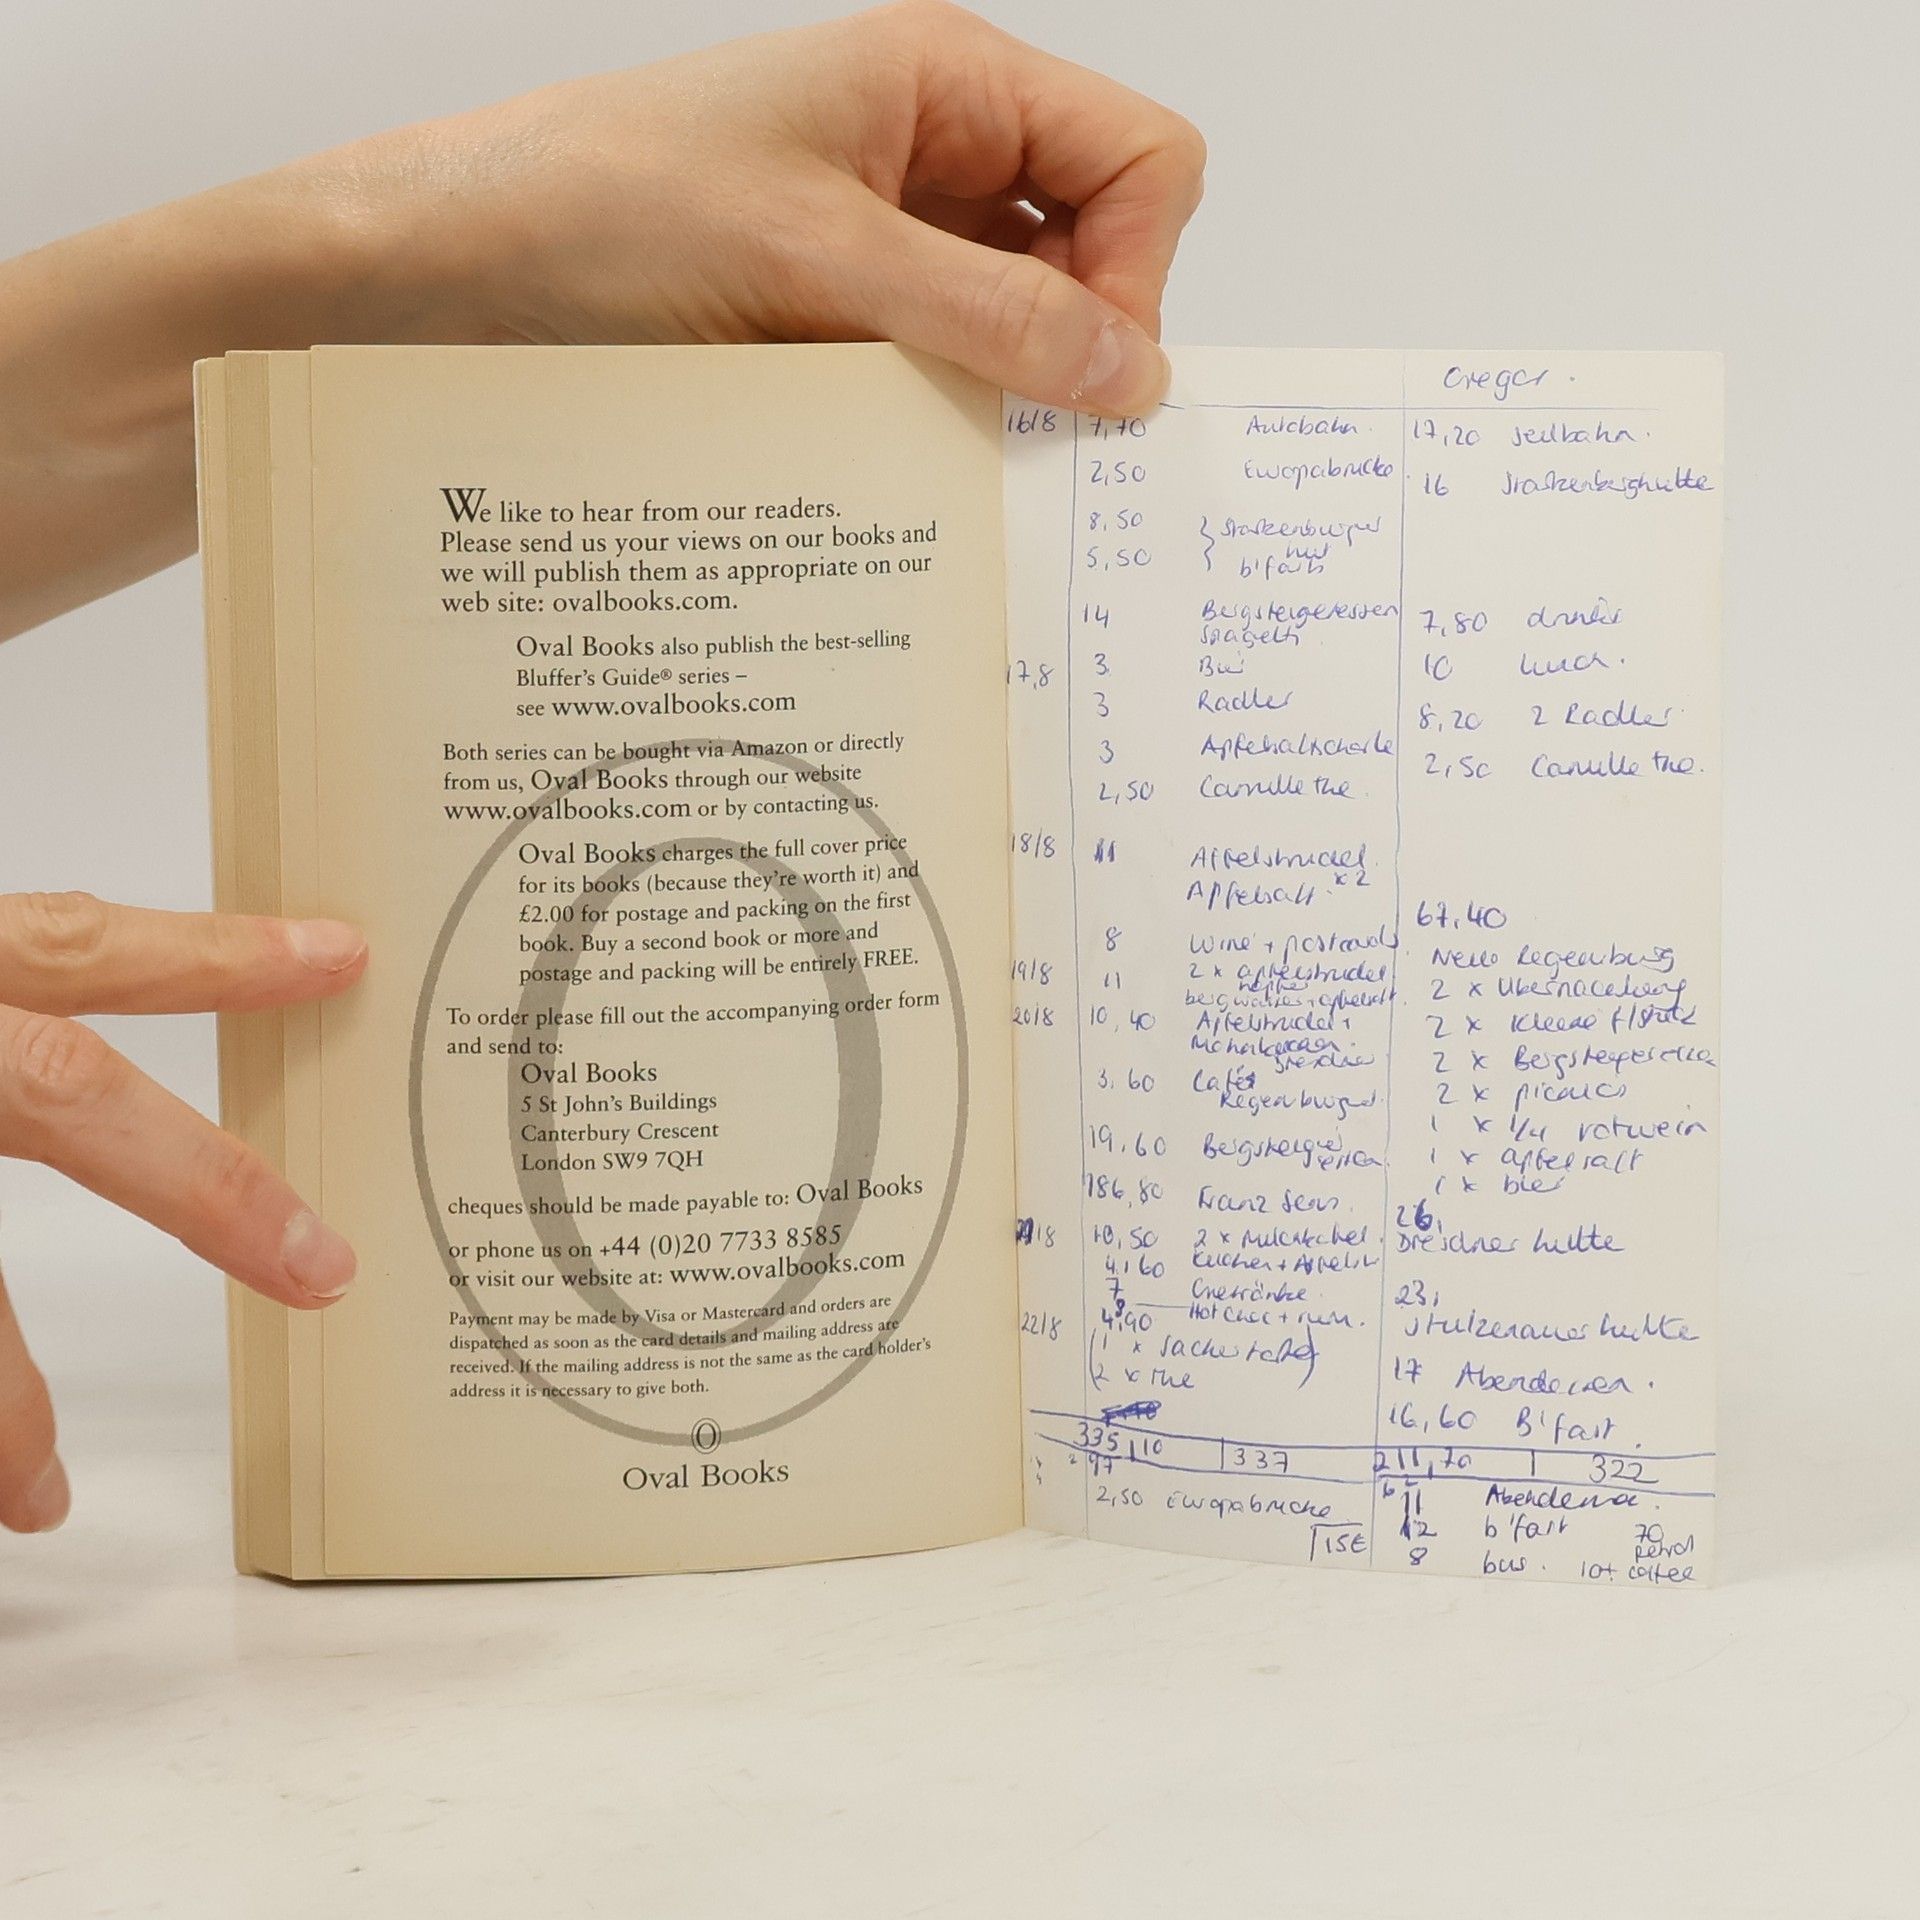 We like to hear from our readers.
Please send us your views on our books and
we will publish them as appropriate on our
web site: ovalbooks.com.
Oval Books also publish the best-selling
Bluffer's Guide® series –
see www.ovalbooks.com
Both series can be bought via Amazon or directly
from us, Oval Books through our website
www.ovalbooks.com or by contacting us.
Oval Books charges the full cover price
for its books (because they're worth it) and
£2.00 for postage and packing on the first
book. Buy a second book or more and
postage and packing will be entirely FREE.
To order please fill out the accompanying order form
and send to:
Oval Books
5 St John's Buildings
Canterbury Crescent
London SW9 7QH
cheques should be made payable to: Oval Books
or phone us on +44 (0)20 7733 8585
or visit our website at: www.ovalbooks.com
Payment may be made by Visa or Mastercard and orders are
dispatched as soon as the card details and mailing address are
received. If the mailing address is not the same as the card holder's
address it is necessary to give both.
Oval Books
16/8 7,70 Autobahn.
2,50 Europabrucke
8,50
5,50 b'fast
14 Bergsteigeressen
17,8 3 Bier
3 Radler
3
2,50 Camille the.
18/8 11 Apfelstrudel.
Apfelsaft x2
8 wine + postcards
19/8 11 2 x apfelstrudel
20/8 10,40 Apfelstrudel +
3.60 Cafe
19,60
186,80 Franz Senn.
18 10,50 2 x
4,60 Kuchen +
7 Getränke.
22/8 4,90 Hot choc + rum.
(1 x Sachertorte)
(2 x the
335,10 337
2,50 Europabrucke
15€
Gregor.
17,20 Seilbahn.
16
7,80 drinks
10 lunch.
8,20 2 Radler
2,50 Camille the.
67,40
Neue Regenburg
2 x
2 x Kleine
2 x
2 x picnics
1 x 1/4 rotwein
1 x apfelsaft
1 x bier
26,
Dresdner hutte
23,
17 Abendessen.
16,60 B'fast.
211,70 322
11
12 b'fast 70
petrol
8 bus. 10+ coffee